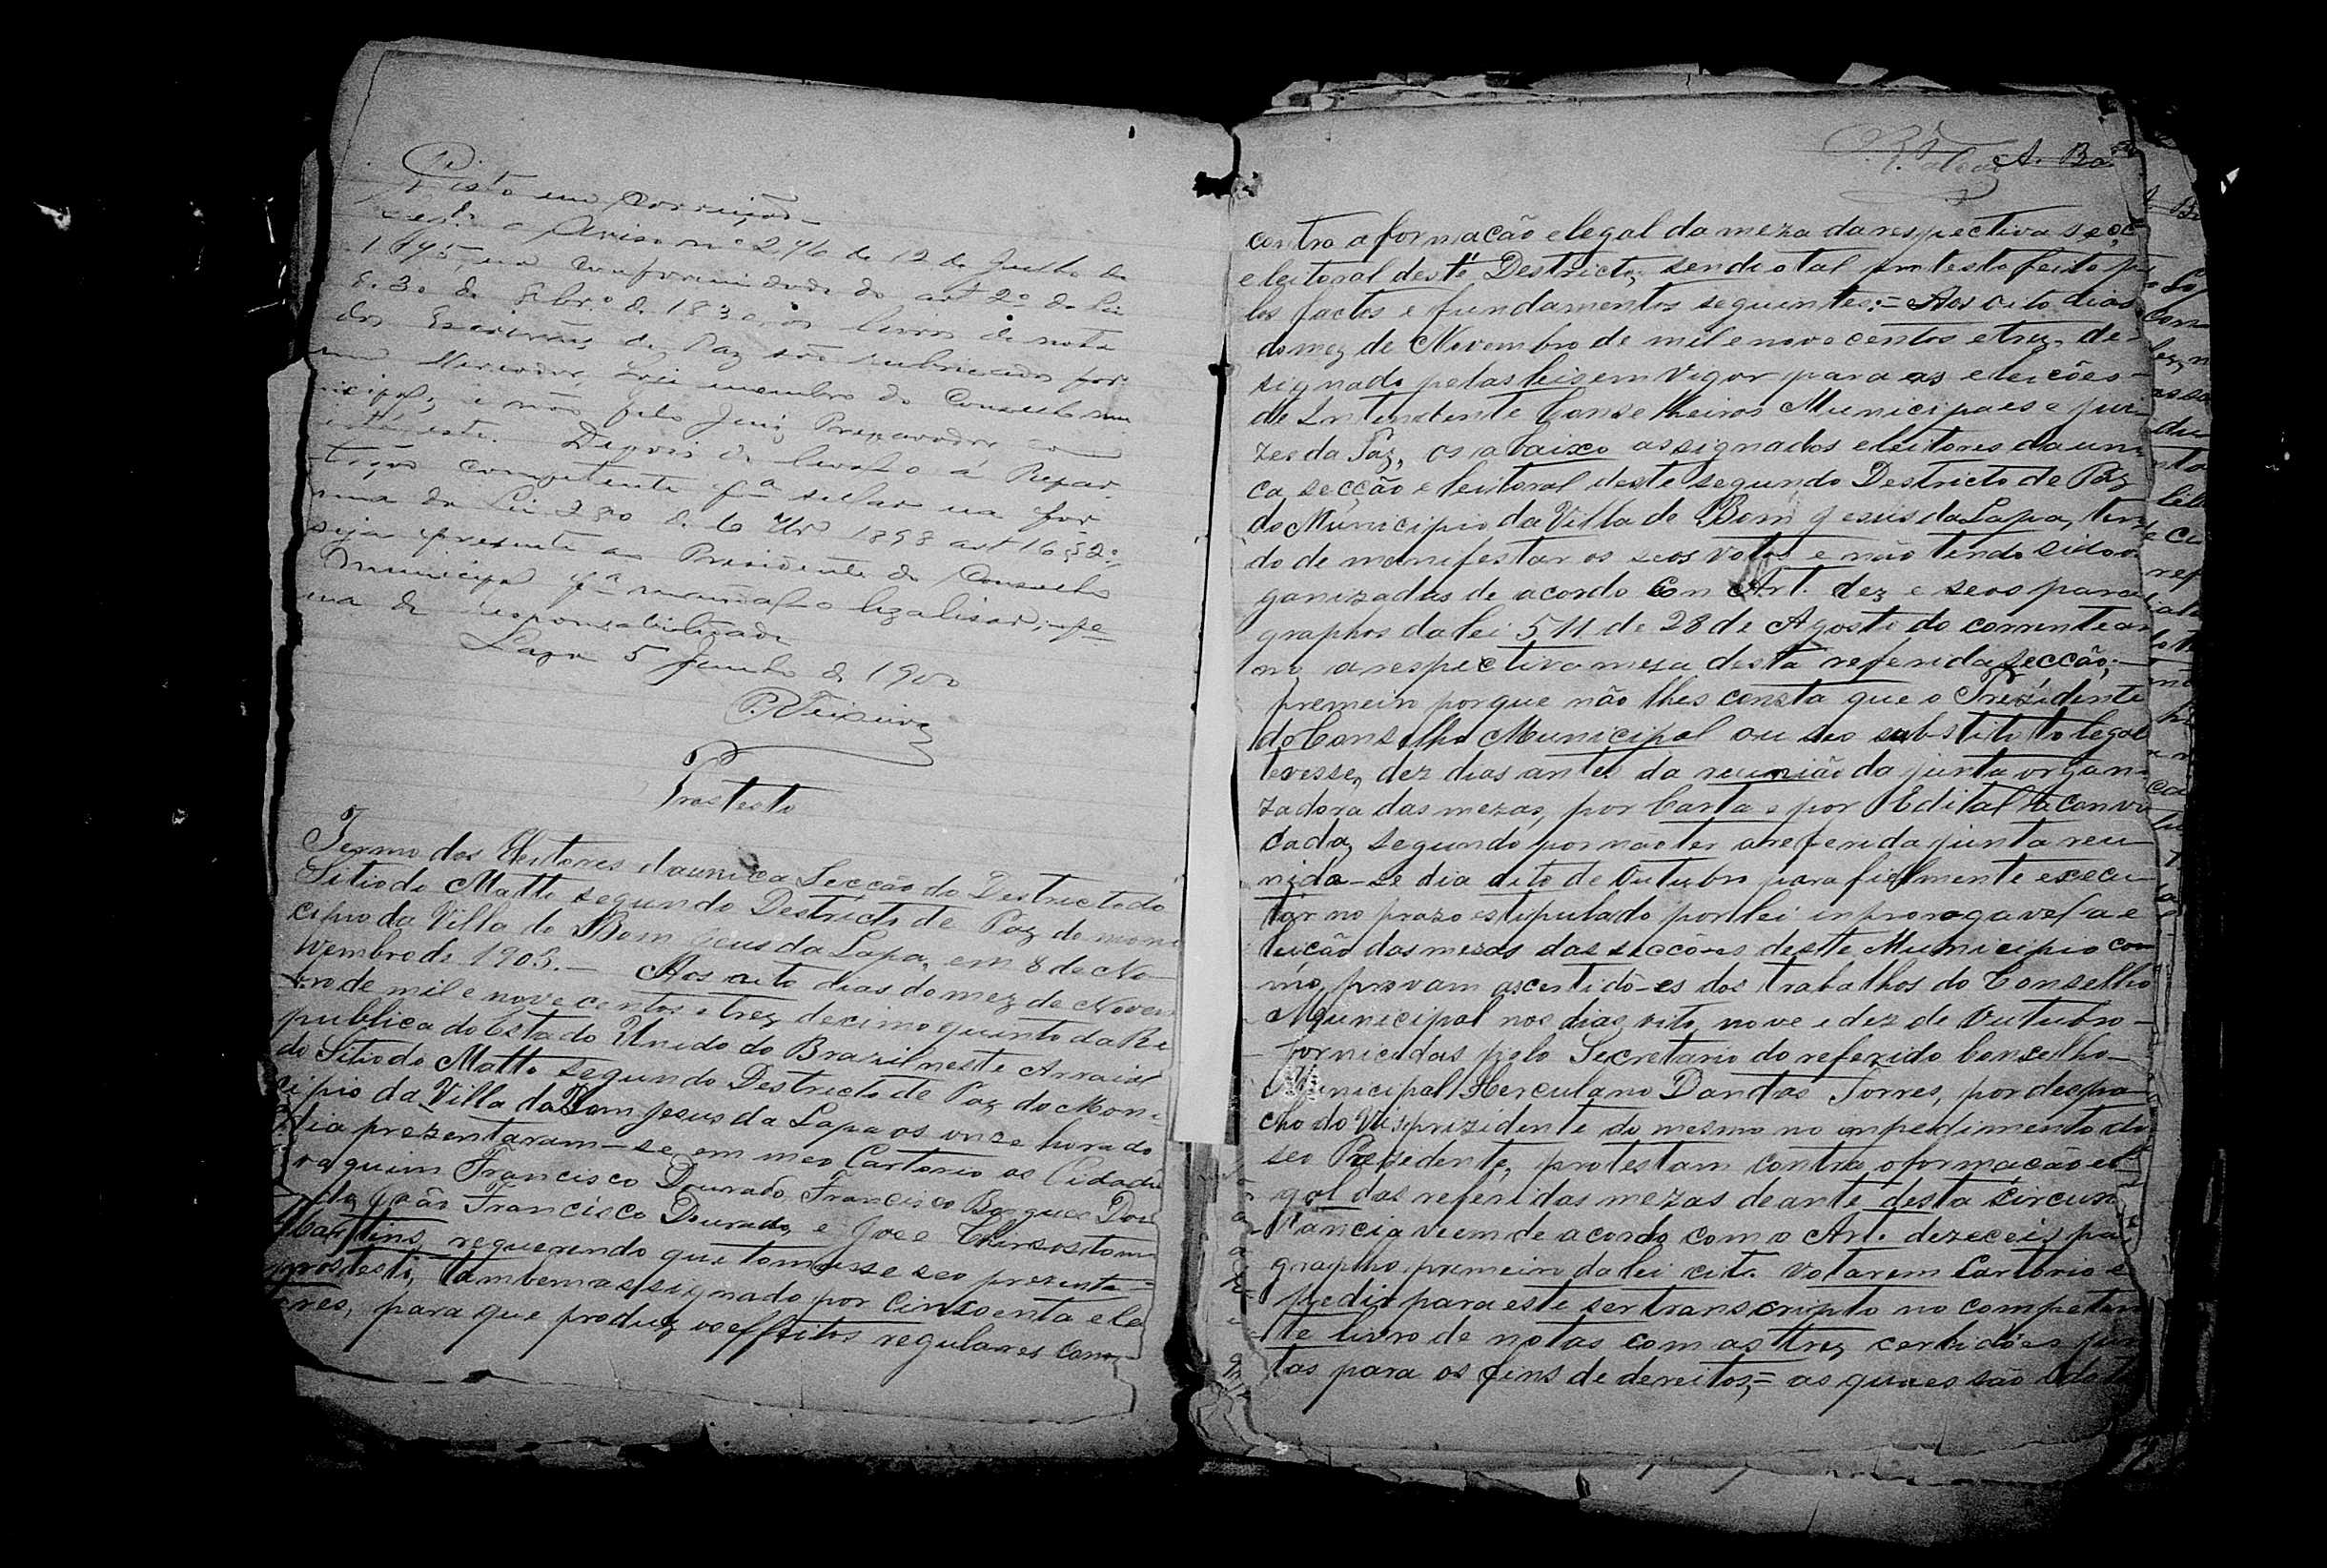 Visto em Correição
Segdo o Aviso no 276 de 12 de Julho de
1895, na conformidade do art 2o da lei
de 30 de 8br.o de 1830 os livros de nota
dos Escrivães de Paz são rubricados por
um Vereador, hoje membro do Conselho mu
nicipal, e não pelo Juiz Preparador como
está este. Depois de levado á Repar
tição competente pa sellar na for
ma da Lei 280 de 6 7bro 1898 art 16 § 2o,
seja presente ao Presidente do Conselho
Municipal pa mandal-o legalisar, sob pe
na de responsabilidade
Lapa 5 Junho de 1900
P. Teixeira
Prostesto
Termo dos Eleitores da unica Secção do Destricto do
Sitio do Matto segundo Destricto de Paz do moni
cipio da Villa do Bom Jesus da Lapa, em 8 de No-
vembro de 1903.— Aos oito dias do mez de Novem
bro de mil e nove centos e trez decimo quinto da Re
publica do Estado Unido do Brazil neste Arraial
do Sitio do Matto segundo Destricto de Paz do Mon-
cipio da Villa do Bom Jesus da Lapa as onze hora do
dia prezentaram-se em meo Cartorio os Cidadã
Joaquim Francisco Dourado, Francisco Borques Dou
rado, João Francisco Dourado, e Joze Chirsostomo
Martins, requerendo que tomasse seo prezente=
prostesto, tambem assignado por Cinsoenta elei
tores, para que produz os effeitos regulares Com-
A. Ba
contra a formacão elegal da meza da respectiva secç
eleitoral deste Destricto, sendo o tal protesto feito pe
los factos e fundamentos seguintes:= Aos oito dias
do mez de Novembro de mil e nove centos e trez, de-
signado pelas leis em vigor para as eleicões-
de Intendente Conselheiros Municipaes e jui-
zes da Paz, os abaixo assignados eleitores da uni
ca secção eleitoral deste segundo Destricto de Paz
do Municipio da Villa de Bom Jesus da Lapa, ten
do de manifestar os seos votos e não tendo sido or
ganizadas de acordo Com Art. dez e seos para
graphos da lei 511 de 28 de Agosto do corrente an
no a respectiva meza desta referida secção;—
premeiro porque não lhes consta que o Prezidente
do Conselho Municipal ou seo substituto legal
tevesse, dez dias antes da reunião da junta organi
zadora das mezas, por Carta e por Edital a convo
cada, segundo por não ter a referida junta reu
nida-se dia oito de Outubro para fielmente execu-
tar no prazo estipulado por lei inprorogavel a e
leição das mezas das seccões deste Municipio co
mo, provam as certidões dos trabalhos do Conselho
Municipal nos dias oito, nove e dez de Outubro-
fornicidas pelo Secretario do referido Conselho-
Municipal Herculano Dantas Torres, por despa-
cho do Viseprizidente do mesmo no enpedimento do
seo Presedente, protestam contra a formacão el
gal das referidas mezas deante desta circun
tancia veem de acordo com o Art. dezeceis pa
grapho premeiro da lei cita. Votar em Cartorio e
pedir para este ser transcripto no competen
te livro de notas com as trez certidões jun
tas para os fins de dereitos,= as quaes são